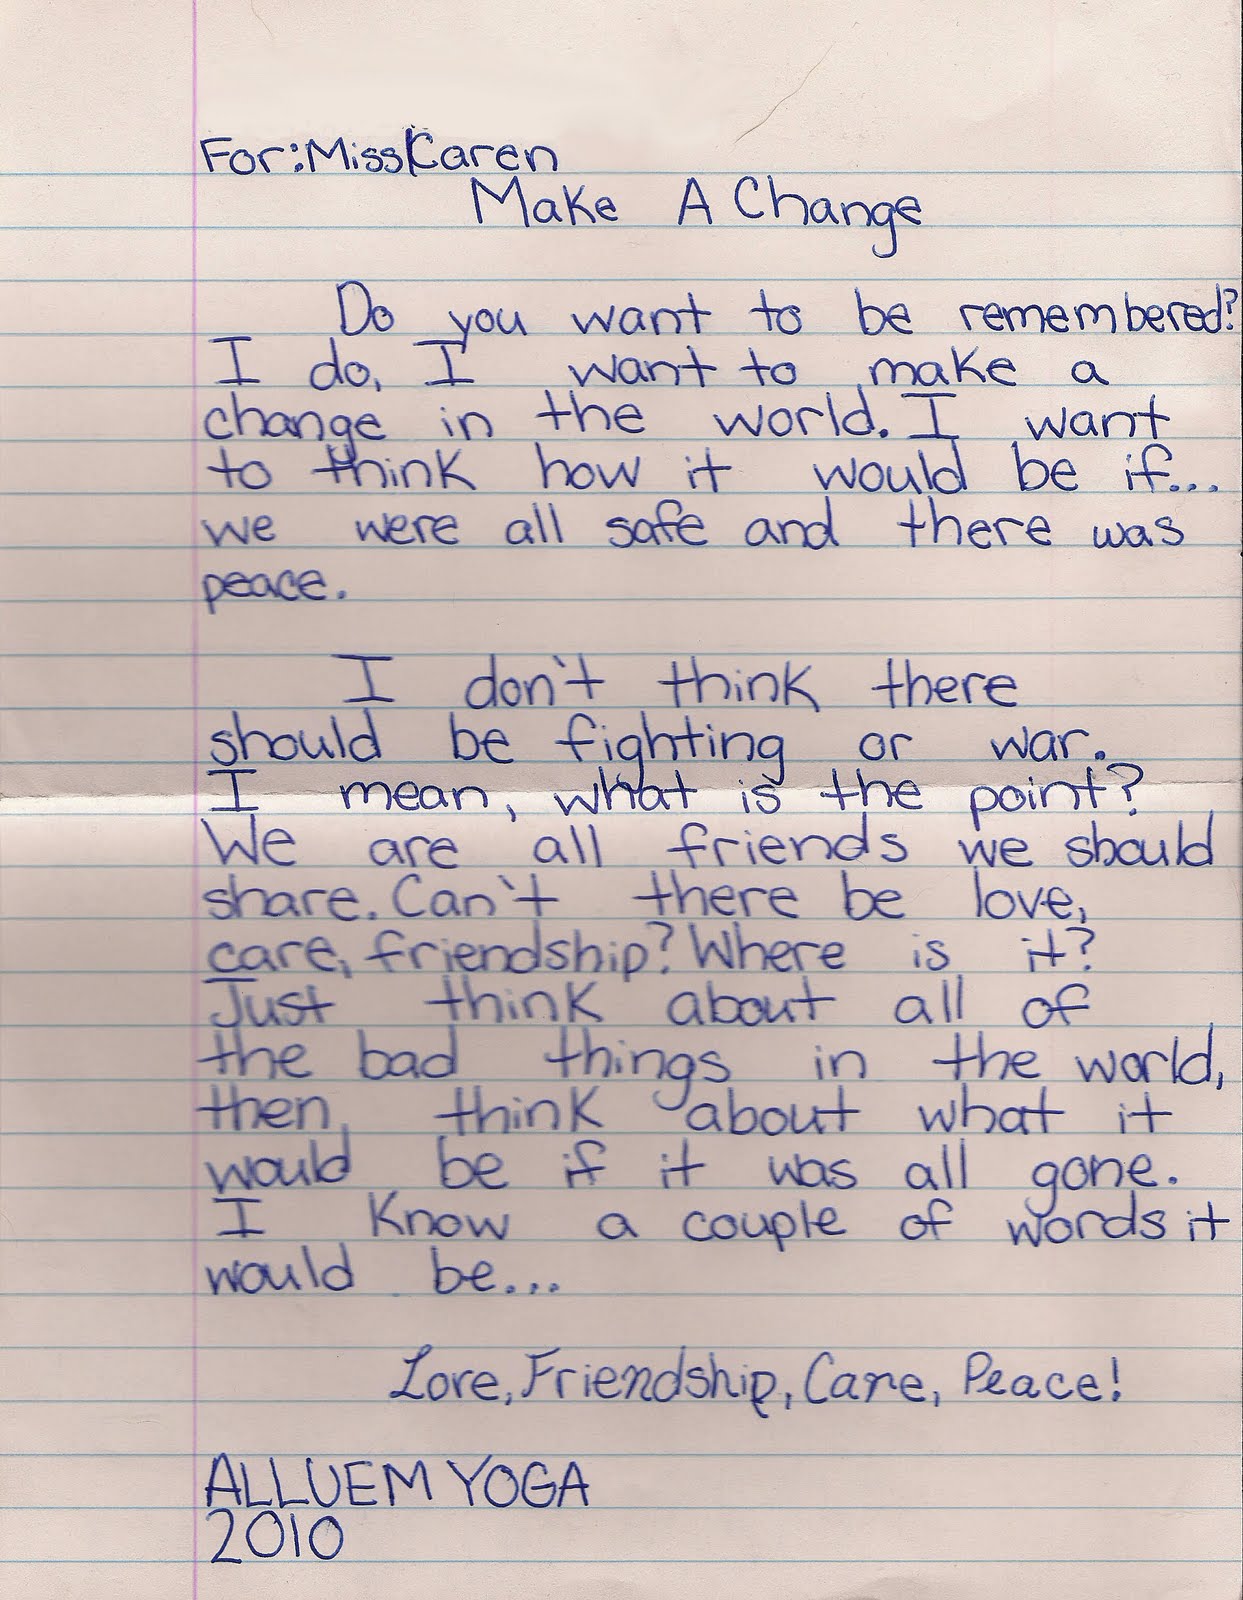 For: Miss Karen
Make A Change
Do you want to be remembered?
I do, I want to make a
change in the world. I want
to think how it would be if...
we were all safe and there was
peace.
I don't think there
should be fighting or war.
I mean, what is the point?
We are all friends we should
share. Can't there be love,
care, friendship? Where is it?
Just think about all of
the bad things in the world,
then, think about what it
would be if it was all gone.
I know a couple of words it
would be...
Love, Friendship, Care, Peace!
ALLUEM YOGA
2010